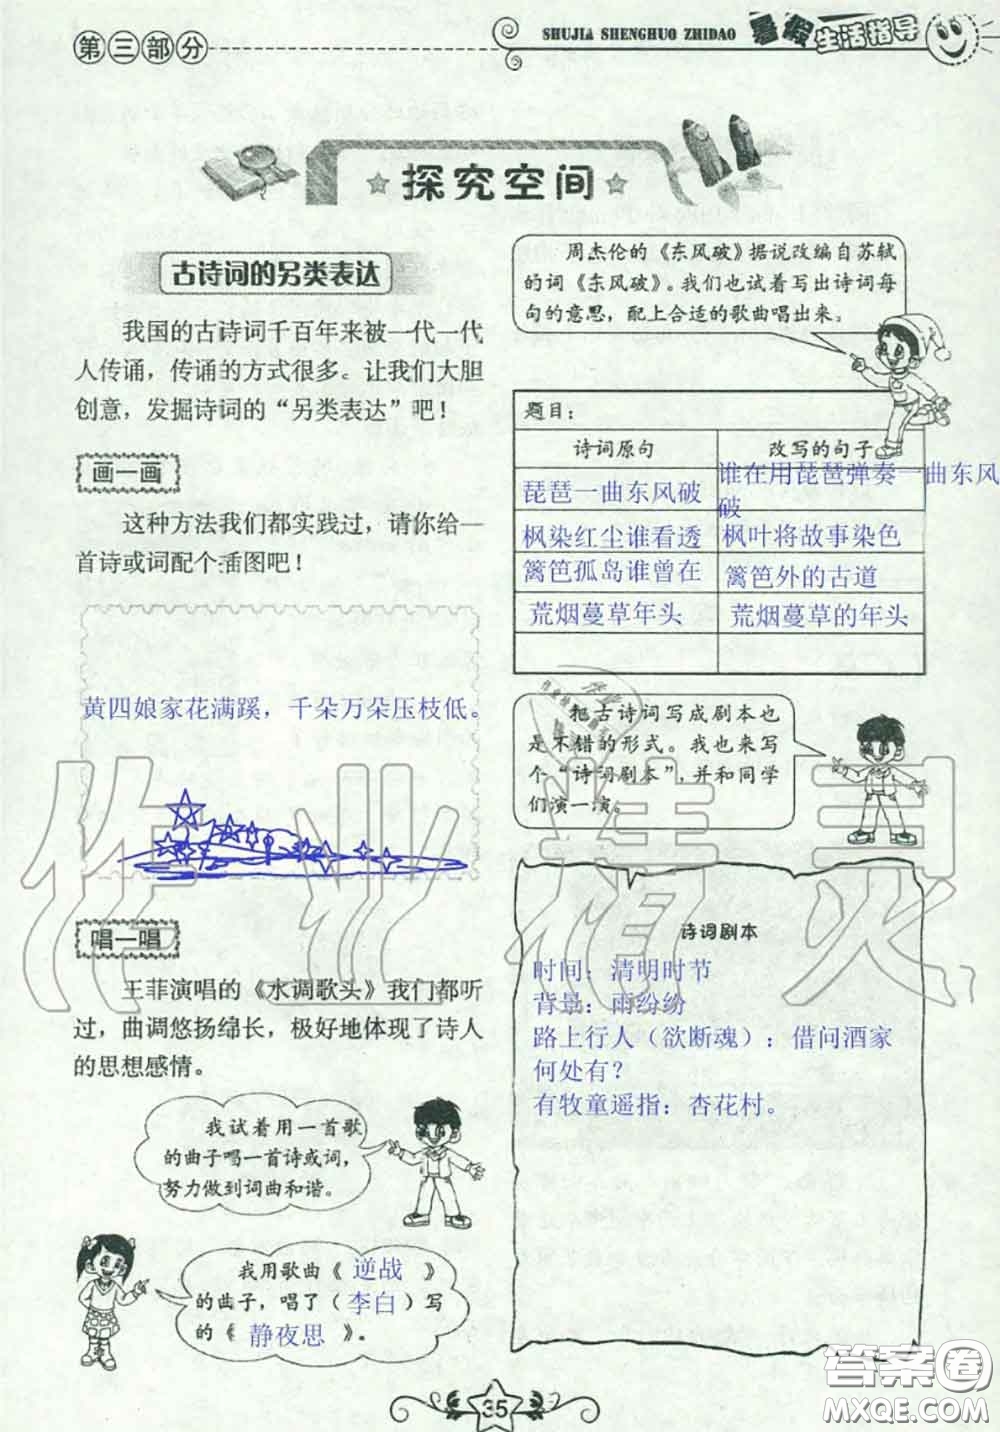 第三部分
SHUJIA SHENGHUO ZHIDAO
暑假生活指导
探究空间
古诗词的另类表达
我国的古诗词千百年来被一代一代
人传诵，传诵的方式很多。让我们大胆
创意，发掘诗词的“另类表达”吧！
画一画
这种方法我们都实践过，请你给一
首诗或词配个插图吧！
黄四娘家花满蹊，千朵万朵压枝低。
唱一唱
王菲演唱的《水调歌头》我们都听
过，曲调悠扬绵长，极好地体现了诗人
的思想感情。
我试着用一首歌
的曲子唱一首诗或词，
努力做到词曲和谐。
我用歌曲《 逆战 》
的曲子，唱了（李白）写
的《 静夜思 》。
周杰伦的《东风破》据说改编自苏轼
的词《东风破》。我们也试着写出诗词每
句的意思，配上合适的歌曲唱出来。
题目：
诗词原句 改写的句子
琵琶一曲东风破 谁在用琵琶弹奏一曲东风
破
枫染红尘谁看透 枫叶将故事染色
篱笆孤岛谁曾在 篱笆外的古道
荒烟蔓草年头 荒烟蔓草的年头
把古诗词写成剧本也
是不错的形式。我也来写
个“诗词剧本”，并和同学
们演一演。
诗词剧本
时间：清明时节
背景：雨纷纷
路上行人（欲断魂）：借问酒家
何处有？
有牧童遥指：杏花村。
作业精灵
35
答案圈
MXQE.COM